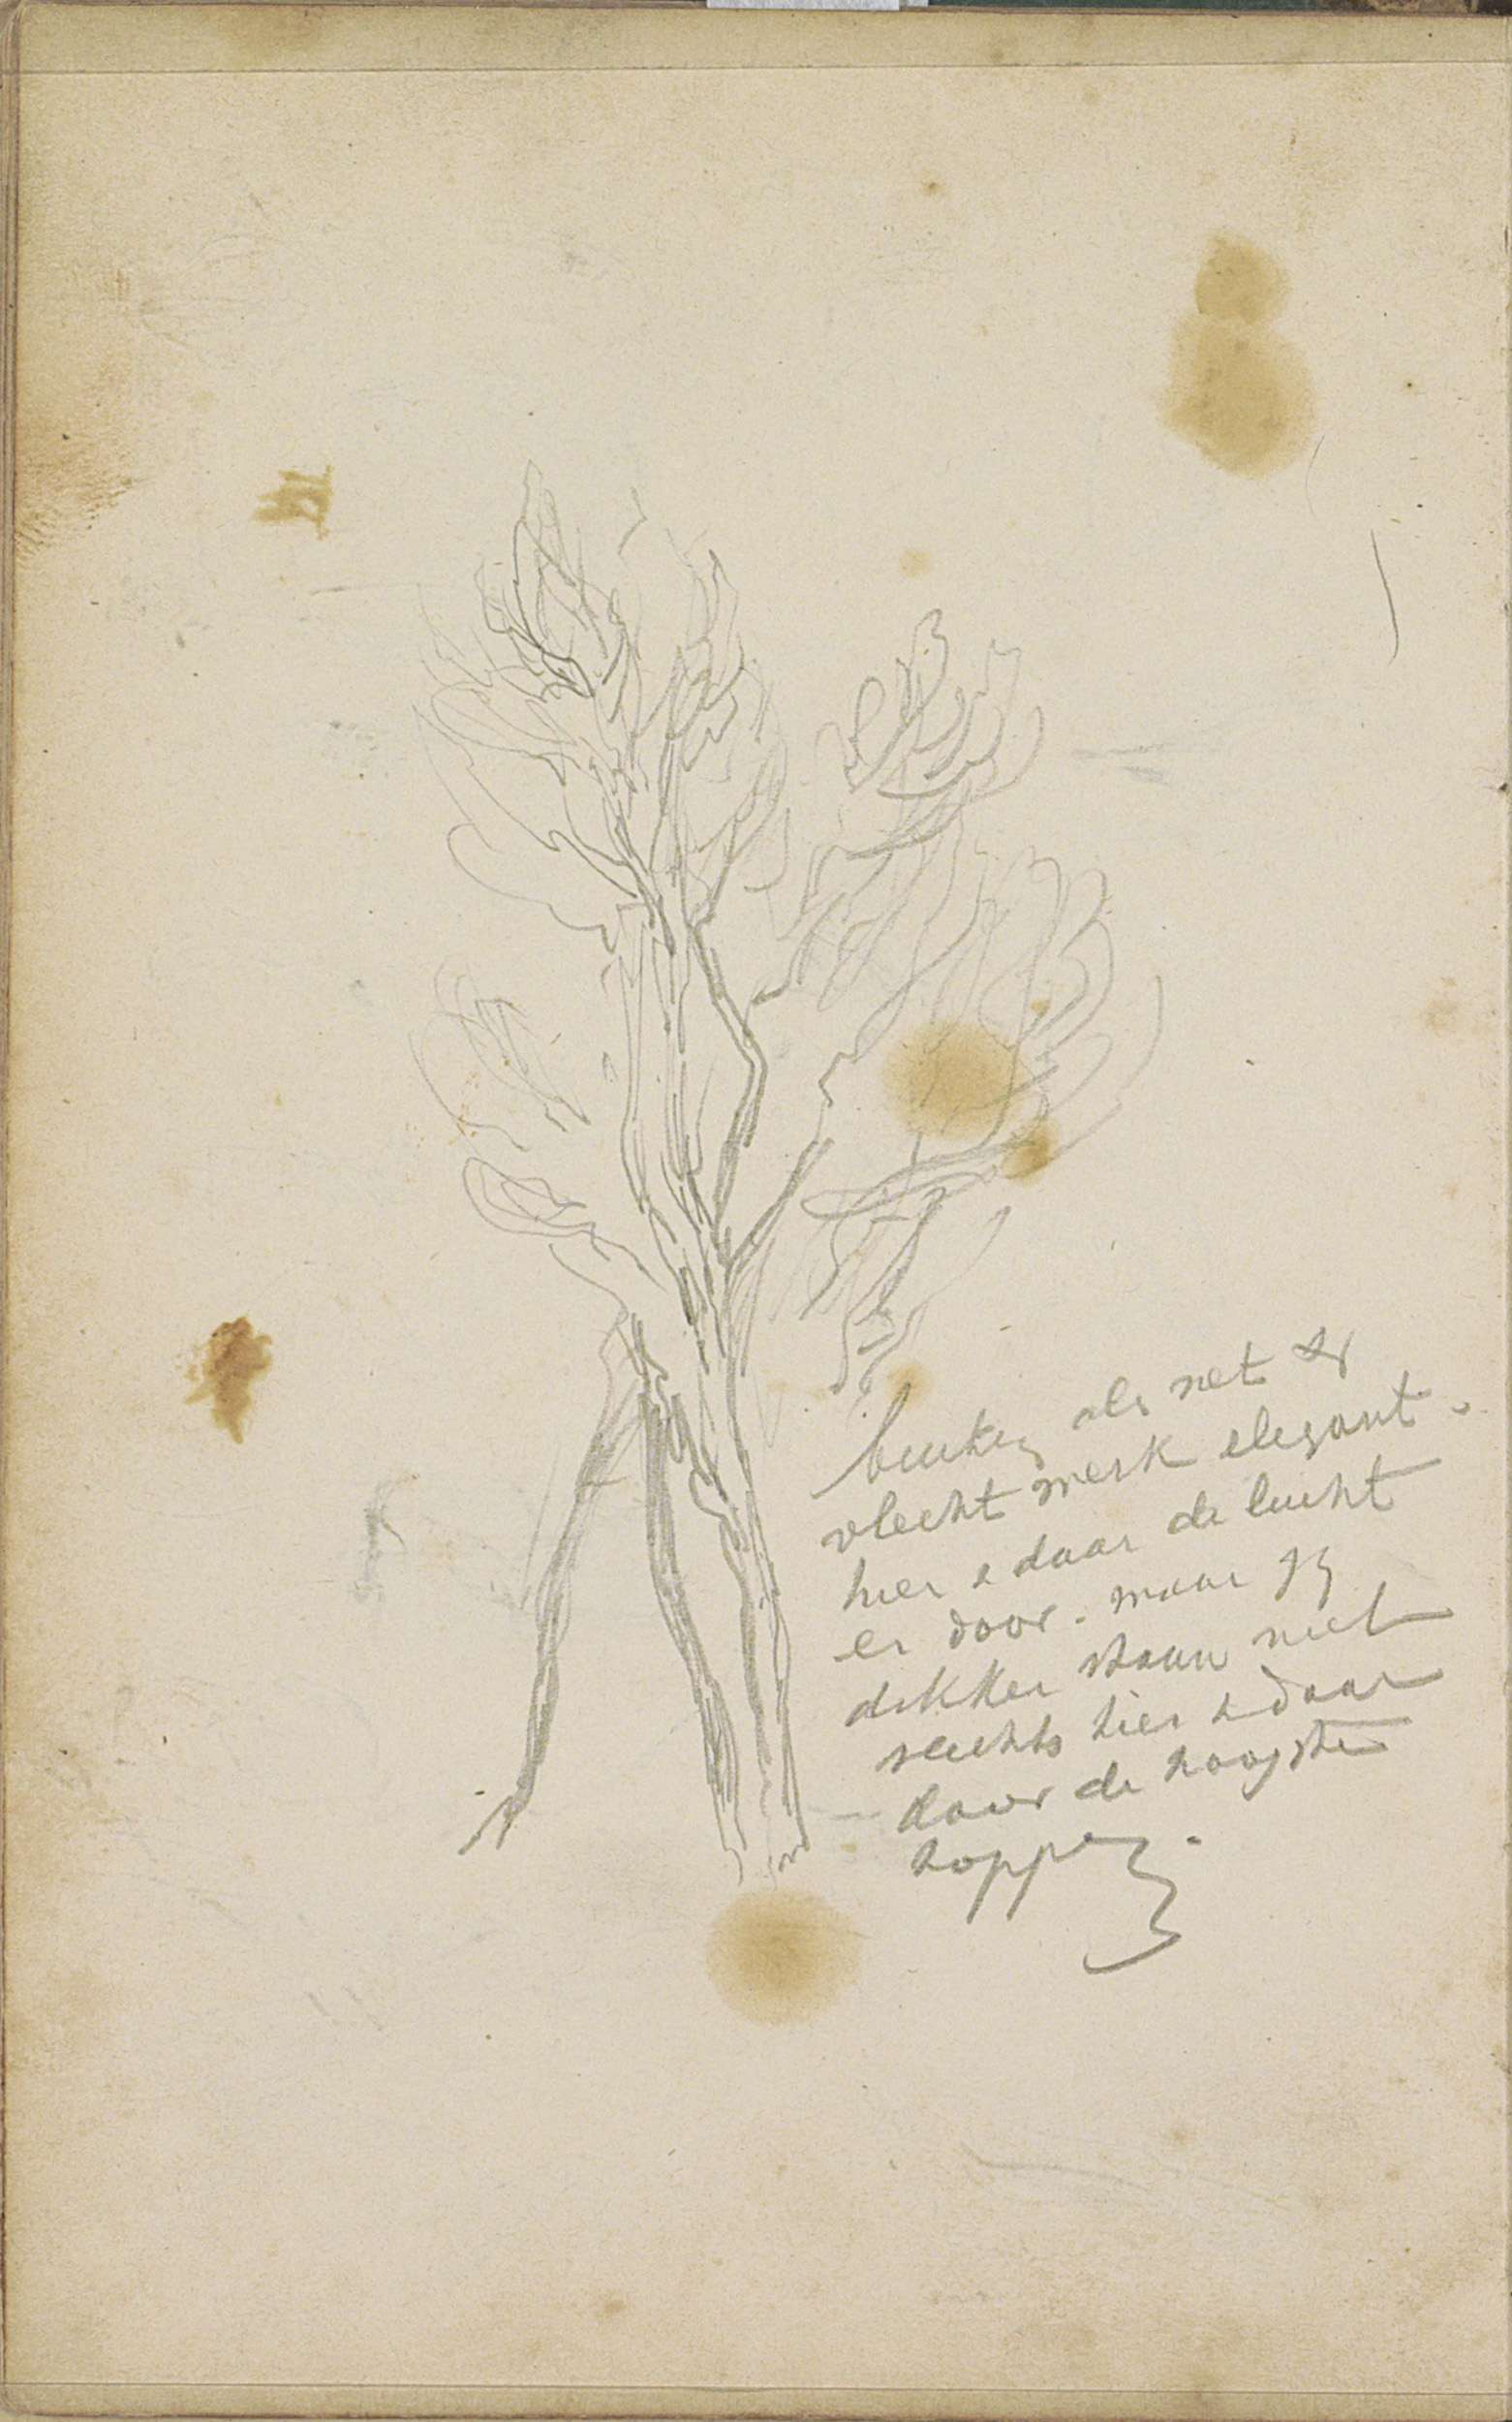 beuken als net &
vlechtwerk elegant.
hier & daar de lucht
er door. maar zij
dikker staan niet
slechts hier & daar
door de hoogste
toppen.